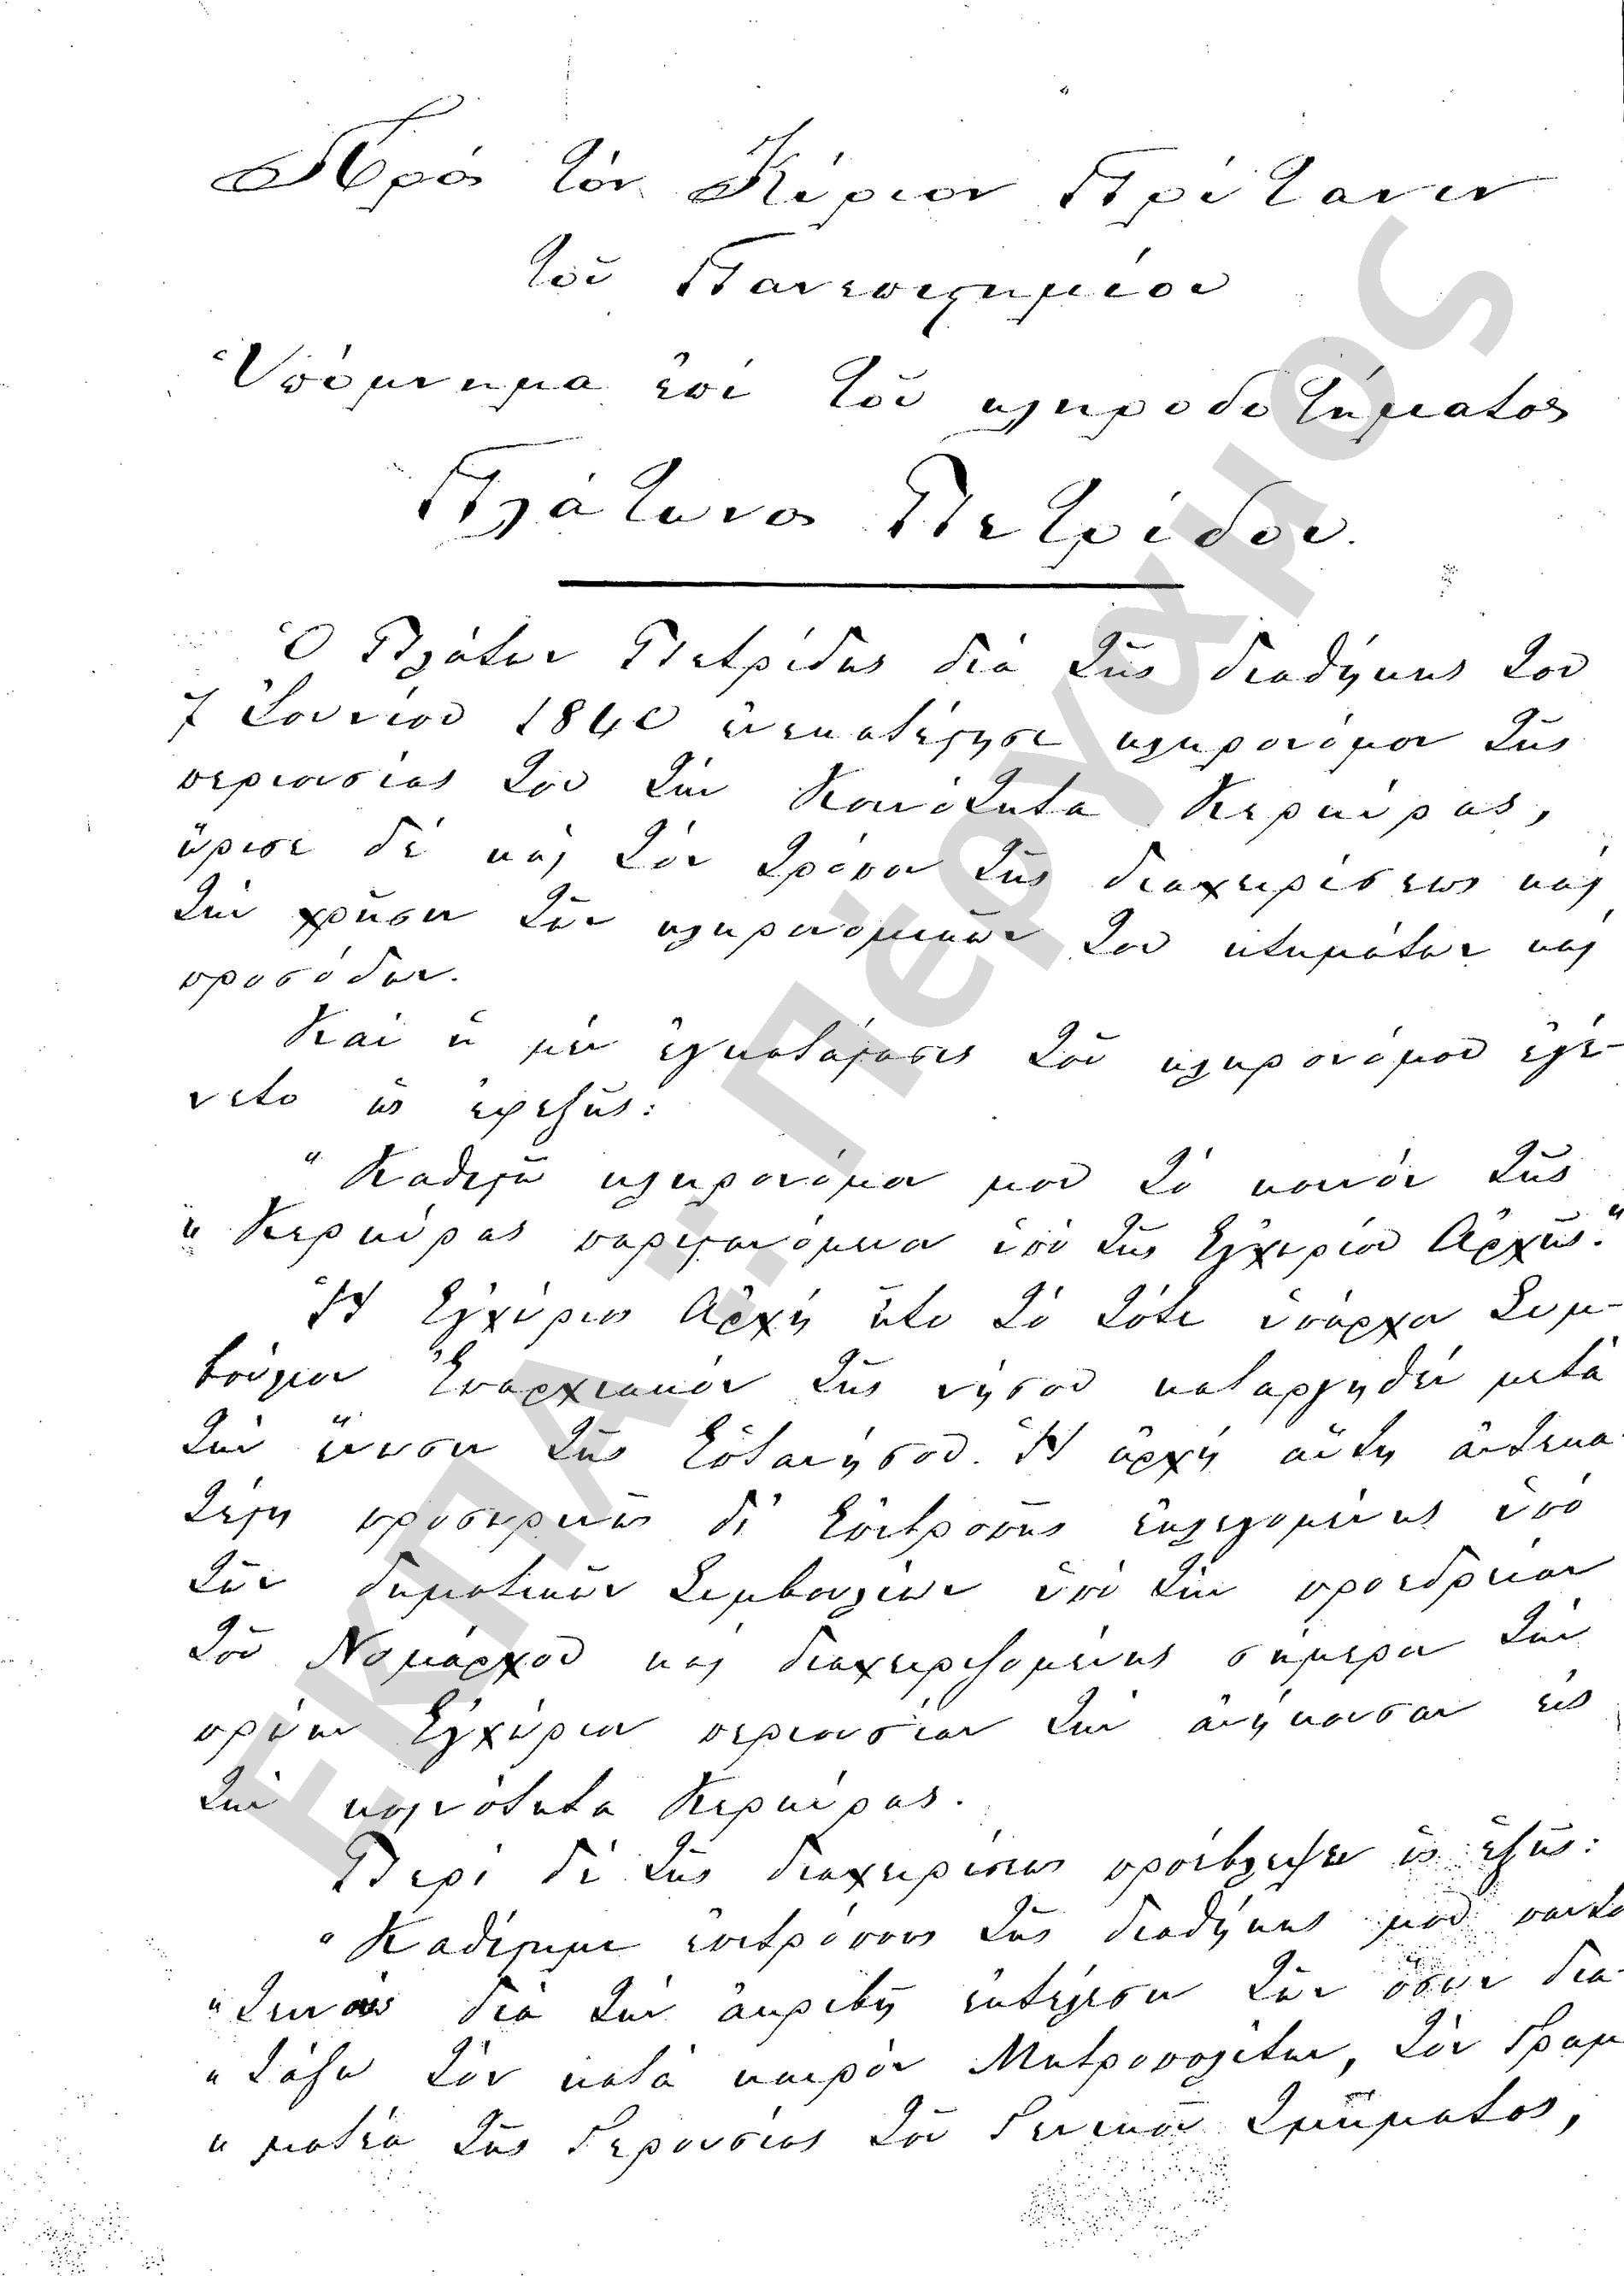 Πρὸς τὸν Κύριον Πρύτανιν
τοῦ Πανεπιστημίου
Ὑπόμνημα ἐπὶ τοῦ κληροδοτήματος
Πλάτωνος Πετρίδου.
Ὁ Πλάτων Πετρίδης διὰ τῆς διαθήκης του
7 Ἰουνίου 1840 ἐγκατέστησε κληρονόμον τῆς
περιουσίας του τὴν Κοινότητα Κερκύρας,
ὥρισε δὲ καὶ τὸν τρόπον τῆς διαχειρίσεως καὶ
τὴν χρῆσιν τῶν κληρονομικῶν του κτημάτων καὶ
προσόδων.
Καὶ ἡ μὲν ἐγκατάστασις τοῦ κληρονόμου ἐγέ-
νετο ὡς ἐφεξῆς:
" Καθιστῶ κληρονόμον μου τὸ κοινὸν τῆς
" Κερκύρας παριστανόμενον ὑπὸ τῆς Ἐγχωρίου Ἀρχῆς."
Ἡ Ἐγχώριος Ἀρχὴ ἦτο τὸ τότε ὑπάρχον Συμ-
βούλιον Ἐπαρχιακὸν τῆς νήσου καταργηθὲν μετὰ
τὴν ἕνωσιν τῆς Ἑπτανήσου. Ἡ ἀρχὴ αὕτη ἀντικα-
τέστη προσωρινῶς δι' Ἐπιτροπῆς ἐκλεγομένης ὑπὸ
τῶν δημοτικῶν Συμβουλίων ὑπὸ τὴν προεδρείαν
τοῦ Νομάρχου καὶ διαχειριζομένης σήμερον τὴν
πρώην Ἐγχώριον περιουσίαν τὴν ἀνήκουσαν εἰς
τὴν κοινότητα Κερκύρας.
Περὶ δὲ τῆς διαχειρίσεως προέβλεψεν ὡς ἑξῆς:
" Καθίστημι ἐπιτρόπους τῆς διαθήκης μου παντο-
" τεινοὺς διὰ τὴν ἀκριβῆ ἐκτέλεσιν τῶν ὅσων δια-
" τάξω τὸν κατὰ καιρὸν Μητροπολίτην, τὸν Γραμ
" ματέα τῆς Γερουσίας τοῦ Γενικοῦ τμήματος,
ΕΚΠΑ - Πέργαμος